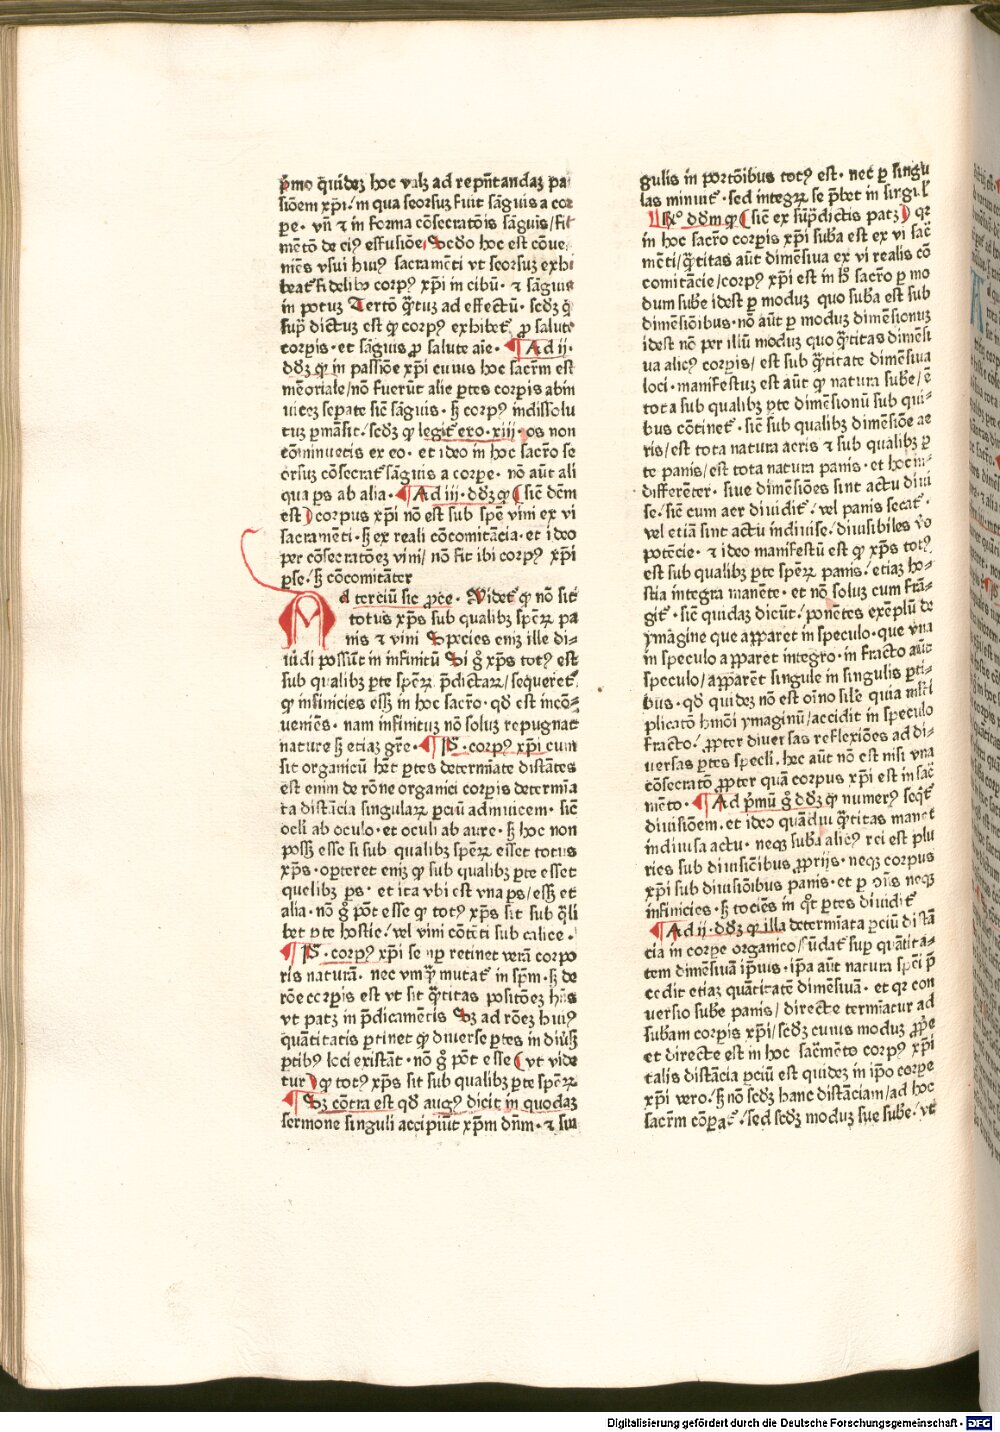 p̄mo q̄ideʒ hoc valʒ ad rep̄ntandaʒ pa
siōem xp̄i/in qua seorsuʒ fuit sāguis a cor
pe· vn̄ ⁊ in forma cōsecratōis sāguis/fit
mētō de eiꝰ effusiōe/ Scd̄o hoc est cōue
niēs vsui huiꝰ sacramēti vt seorsuʒ exhi
beat᷑ fidelibꝰ corpꝰ xp̄i in cibū· ⁊ sāguis
in potuʒ Tertō q̄tuʒ ad effectū· scdʒ ꝙ
sup̄ dictuʒ est ꝙ corpꝰ exhibet᷑ ꝓ salute
corpis· et sāguis ꝓ salute aīe· Ad ii·
dd̄ʒ ꝙ in passiōe xp̄i cuius hoc sacr̄m est
mēoriale/nō fuerūt alie ꝑtes corpis abin
uiceʒ sepate sic̄ sāguis· sʒ corpꝰ indissolu
tuʒ ꝑmāsit· scdʒ ꝙ legit᷑ exo·xiii· os non
cōminuetis ex eo· et ideo in hoc sacr̄o se
orsuʒ cōsecrat᷑ sāguis a corpe· nō aūt ali
qua ps ab alia· Ad iii·dd̄ʒ ꝙ (sic̄ dcm̄
est) corpus xp̄i nō est sub spē vini ex vi
sacramēti· sʒ ex reali cōcomitācia· et ideo
per cōsecratōeʒ vini/nō fit ibi corpꝰ xp̄i
ꝑse/sʒ cōcomitāter
Ad terciū sic ꝓce· Videt᷑ ꝙ nō sit
totus xp̄s sub qualibʒ sper̄ꝝ pa
nis ⁊ vini Species eniʒ ille di-
uidi possūt in infinitū Si g̊ xp̄s totꝰ est
sub qualibʒ ꝑte sper̄ꝝ p̄dictaꝝ/sequeret᷑
ꝙ infinicies essʒ in hoc sacr̄o· qd̄ est incō-
ueniēs· nam infinituʒ nō soluʒ repugnat
nature sʒ etiaʒ gr̄e· P̄· corpꝰ xp̄i cum
sit organicū hēt ꝑtes determīate distātes
est enim de rōne organici corpis determia
ta distācia singulaꝝ ꝑciū adinuicem· sic̄
ocli ab oculo· et oculi ab aure· sʒ hoc non
possʒ esse si sub qualibʒ sper̄ꝝ esset totus
xp̄s· oꝑteret eniʒ ꝙ sub qualibʒ ꝑte esset
quelibʒ ps· et ita vbi est vna ps/essʒ et
alia· nō g̊ pōt esse ꝙ totꝰ xp̄s sit sub q̄li
bet ꝑte hostie/vel vini cōtēti sub calice·
P̄· corpꝰ xp̄i semꝑ retinet verā corpo
ris naturā· nec vmꝙ̄ mutat᷑ in spm̄· sʒ de
rōe corpis est vt sit q̄titas positōeʒ hn̄s
vt patʒ in p̄dicamētis Sʒ ad rōeʒ huiꝰ
quātitatis ꝑtinet ꝙ diuerse ꝑtes in diuʼsʒ
ꝑtibꝰ loci existāt· nō g̊ pōt esse (vt vide
tur) ꝙ totꝰ xp̄s sit sub qualibʒ ꝑte sper̄ꝝ
Sʒ cōtra est qd̄ augꝰ dicit in quodaʒ
sermone singuli accipiūt xp̄m dn̄m· ⁊ sin
gulis in portōibus totꝰ est· nec ꝑ singu
las minuit᷑· sed integrꝝ se p̄bet in singul̕
Rº dd̄m ꝙ (sic̄ ex sup̄dictis patʒ) qꝛ
in hoc sacr̄o corpis xp̄i suba est ex vi sac̄
mēti/q̄titas aūt dimēsiua ex vi realis cō
comitācie/corpꝰ xp̄i est in h̄ sacr̄o ꝑ mo
dum sube idest ꝑ moduʒ quo suba est sub
dimēsiōibus· nō aūt ꝑ moduʒ dimēsionuʒ
idest nō per illū moduʒ quo q̄titas dimēsi
ua alicꝰ corpis/est sub q̄titate dimēsiua
loci· manifestuʒ est aūt ꝙ natura sube/ē
tota sub qualibʒ ꝑte dimēsionū sub qui-
bus cōtinet᷑· sic̄ sub qualibʒ dimēsiōe ae
ris/est tota natura aeris ⁊ sub qualibʒ ꝑ
te panis/est tota natura panis· et hoc in-
differēter· siue dimēsiōes sint actu diui
se/sic̄ cum aer diuidit᷑/vel panis secat᷑·
vel etiā sint actu indiuise/diuisibiles vo
potēcie· ⁊ ideo manifestū est ꝙ xp̄s totꝰ
est sub qualibʒ ꝑte sper̄ꝝ panis/etiaʒ ho-
stia integra manēte· et nō soluʒ cum frā-
git᷑· sic̄ quidaʒ dicūt/ponētes exēplū de
ymāgine que apparet in speculo· que vna
in speculo apparet integro· in fracto aūt
speculo/apparēt singule in singulis ꝑti-
bus· qd̄ quideʒ nō est oīno sil̄e quia mlti
plicatō hm̄oi ymaginū/accidit in speculo
fracto/ꝓpter diuersas reflexiōes ad di-
uersas ꝑtes specli· hec aūt nō est nisi vna
cōsecratō ꝓpter quā corpus xp̄i est in sac̄
mēto· Ad p̄mū g̊ dd̄ʒ ꝙ numerꝰ seqt᷑
diuisiōem· et ideo quādiu q̄titas manet
indiuisa actu· neqʒ suba alicꝰ rei est plu
ries sub diuisiōibus ꝓprijs· neqʒ corpus
xp̄i sub diuisiōibus panis· et ꝑ ↄn̄s neqʒ
infinicies· sʒ tociēs in qt᷑ ꝑtes diuidit᷑
Ad ij· dd̄ʒ ꝙ illa determīata ꝑciū distā
cia in corpe organico/fūdat᷑ suꝑ quātita-
tem dimēsiuā ip̄ius· ip̄a aūt natura spēi p̄
cedit etiaʒ quātitatē dimēsiuā· et qꝛ con
uersio sube panis/directe termīatur ad
subam corpis xp̄i/scdʒ cuius moduʒ ꝓpe
et directe est in hoc sacr̄mēto corpꝰ xp̄i
talis distācia ꝑciū est quideʒ in ip̄o corpe
xp̄i vero/sʒ nō scdʒ hanc distāciam/ad hoc
sacr̄m cōꝑat᷑/sed scdʒ moduʒ sue sube/vt
Digitalisierung gefördert durch die Deutsche Forschungsgemeinschaft - DFG